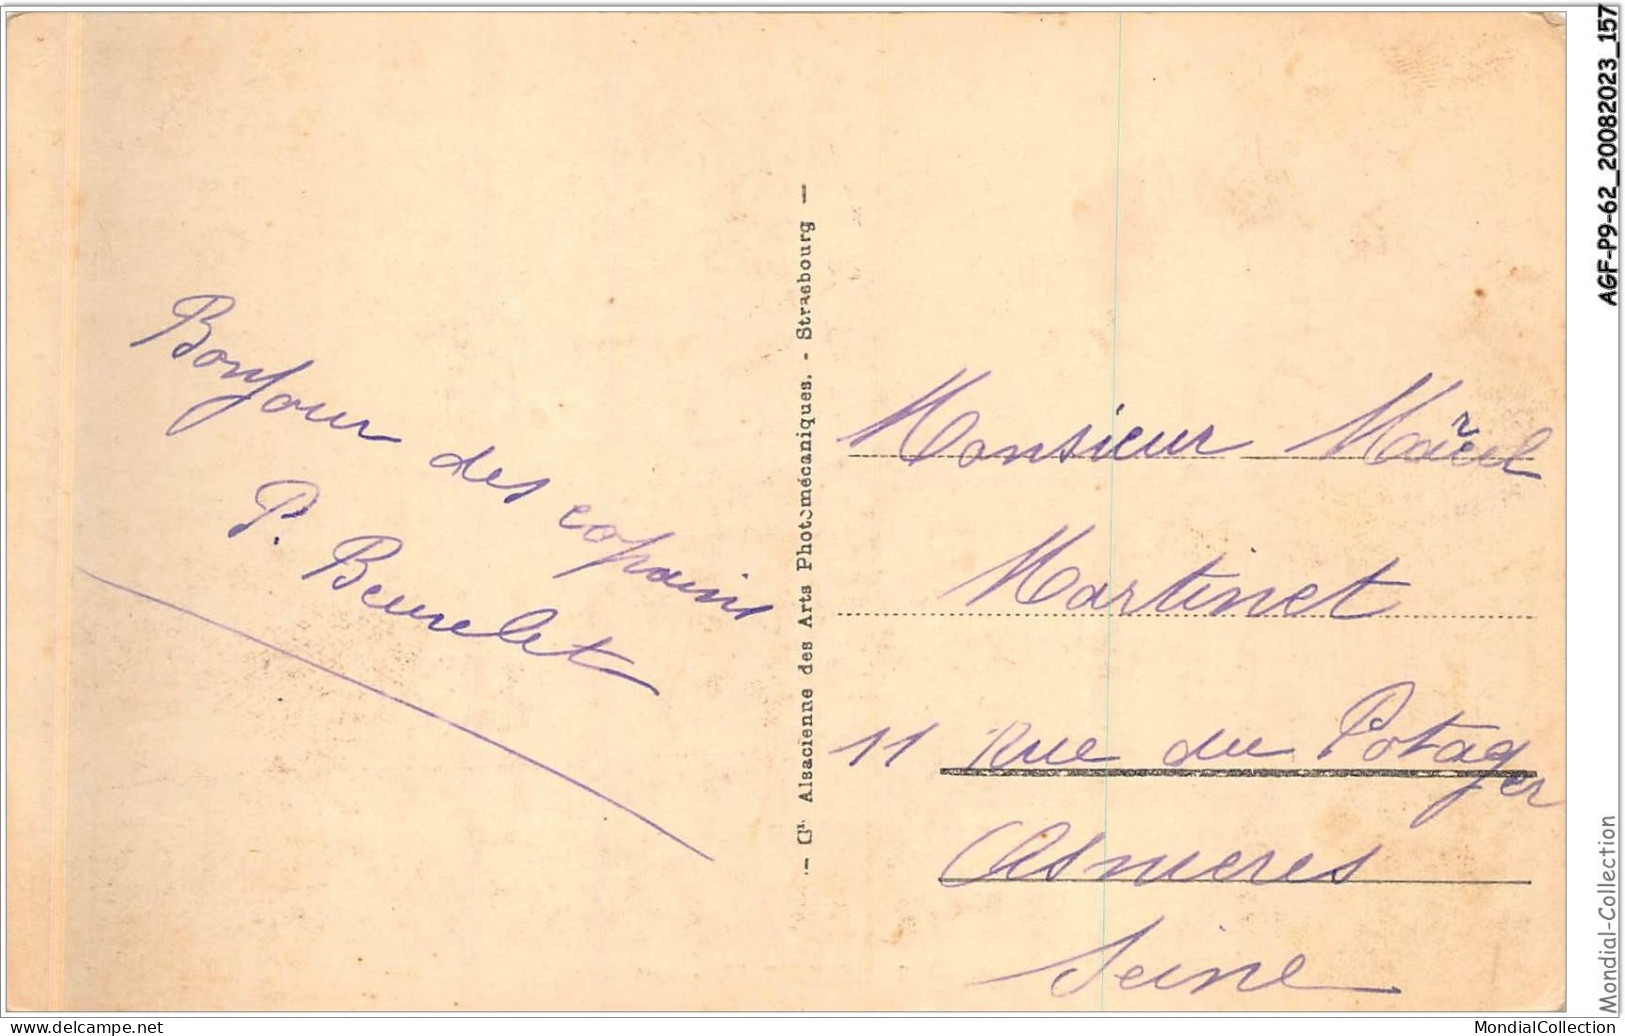 Bonjour des copains
P. Beurelet
— Cie Alsacienne des Arts Photomécaniques. - Strasbourg —
Monsieur Marcel
Martinet
11 Rue du Potager
Asnieres
Seine
AGF-P9-62_20082023_157
Mondial-Collection
www.delcampe.net
MondialCollection